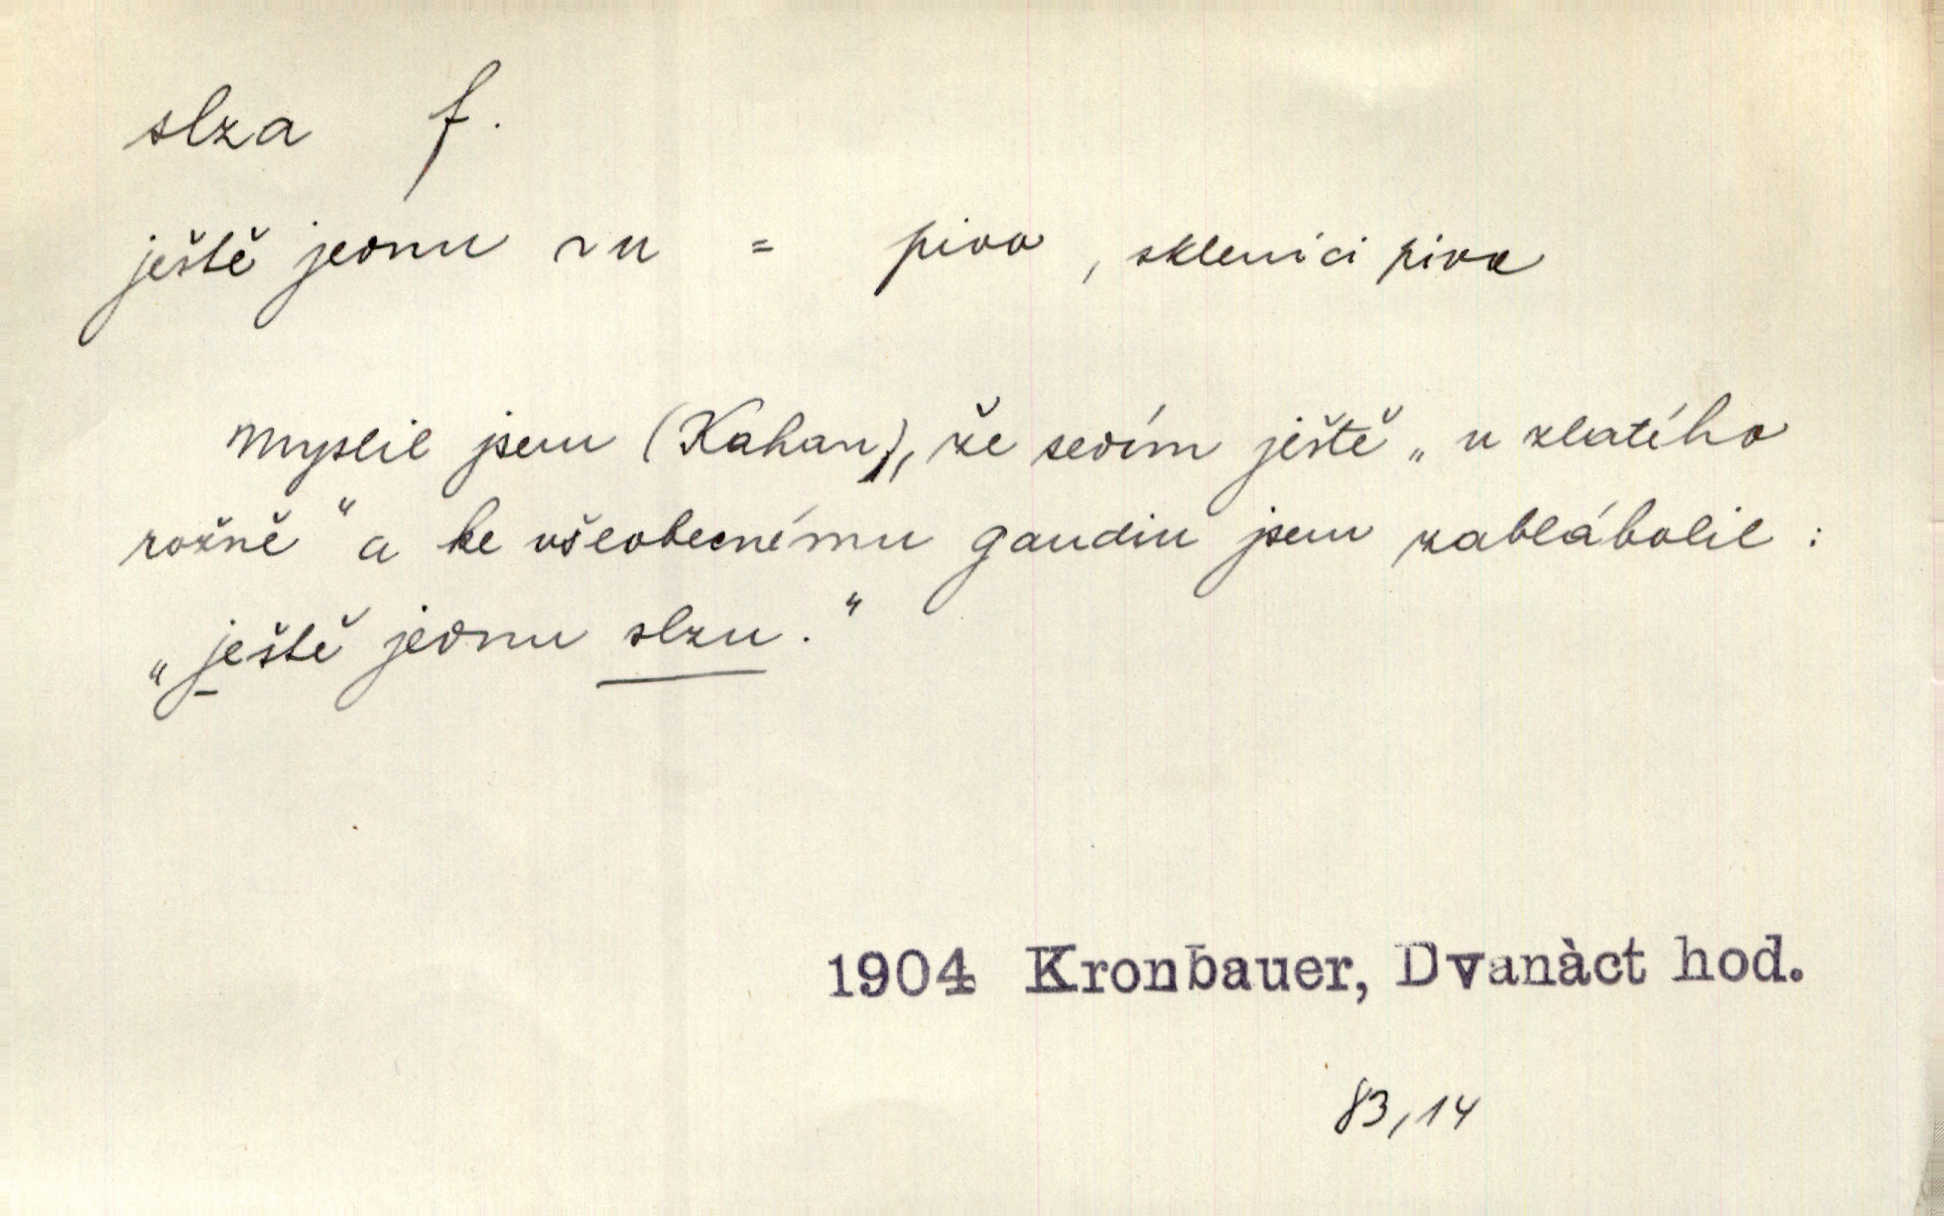 slza f.
ještě jednu ~u = pivo, sklenici piva
Myslil jsem (Kahan), že sedím ještě „u zlatího
rožně“ a ke všeobecnému gaudiu jsem zablábolil:
„ještě jednu slzu.“
1904 Kronbauer, Dvanàct hod.
83,14